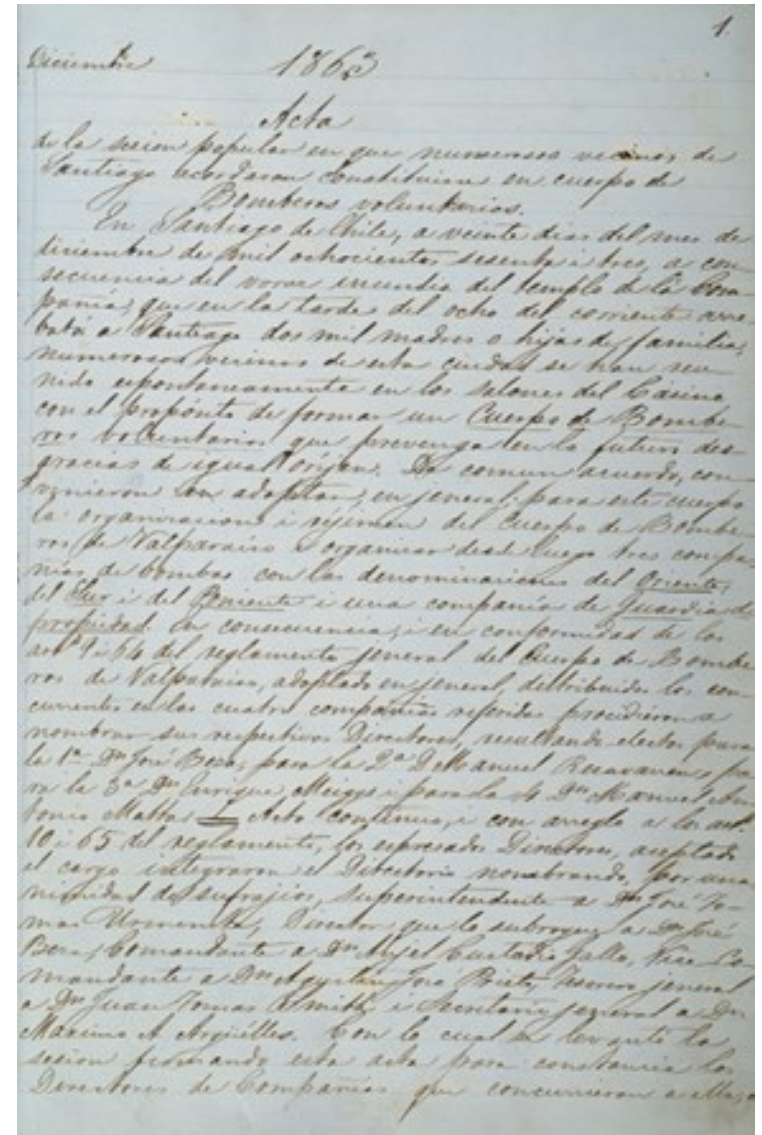 1.
Diciembre 1863
Acta
de la sesion popular en que numerosos vecinos de
Santiago acordaron constituirse en cuerpo de
Bomberos voluntarios.
En Santiago de Chile, a veinte dias del mes de
diciembre de mil ochocientos sesenta i tres, a con-
secuencia del voraz incendio del templo de la Com-
pañía, que en la tarde del ocho del corriente arre-
bató a Santiago dos mil madres o hijas de familia,
numerosos vecinos de esta ciudad se han reu-
nido espontaneamente en los salones del Casino
con el propósito de formar un Cuerpo de Bombe-
ros voluntarios que prevenga en lo futuro des-
gracias de igual oríjen. De comun acuerdo, con-
vinieron en adoptar, en jeneral, para este cuerpo
la organizacion i réjimen del Cuerpo de Bombe-
ros de Valparaiso i organizar desde luego tres compa-
ñías de bombas con las denominaciones del Oriente,
del Sur i del Poniente i una compañía de Guardia de
propiedad. En consecuencia, i en conformidad de los
arts 9 i 64 del reglamento jeneral del Cuerpo de Bombe-
ros de Valparaiso, adoptado en jeneral, distribuidos los con-
currentes en las cuatro compañías referidas procedieron a
nombrar sus respectivos Directores, resultando electos para
la 1a Dn José Besa, para la 2a Dn Manuel Recavarren, pa-
ra la 3a Dn Enrique Meiggs i para la 4 Dn Manuel An-
tonio Matta. Acto continuo, i con arreglo a los art.
10 i 65 del reglamento, los espresados Directores, aceptado
el cargo integraron el Directorio nombrando, por una-
nimidad de sufrajios, Superintendente a Dn José To-
mas Urmeneta, Director que lo subrogue a Dn José
Besa, Comandante a Dn Anjel Custodio Gallo, Vice Co-
mandante a Dn Agustin José Prieto, Tesorero jeneral
a Dn Juan Tomas Smith, i Secretario jeneral a Dn
Maximo A Argüelles. Con lo cual se levantó la
sesion firmando esta acta para constancia los
Directores de Compañías que concurrieron a ella,